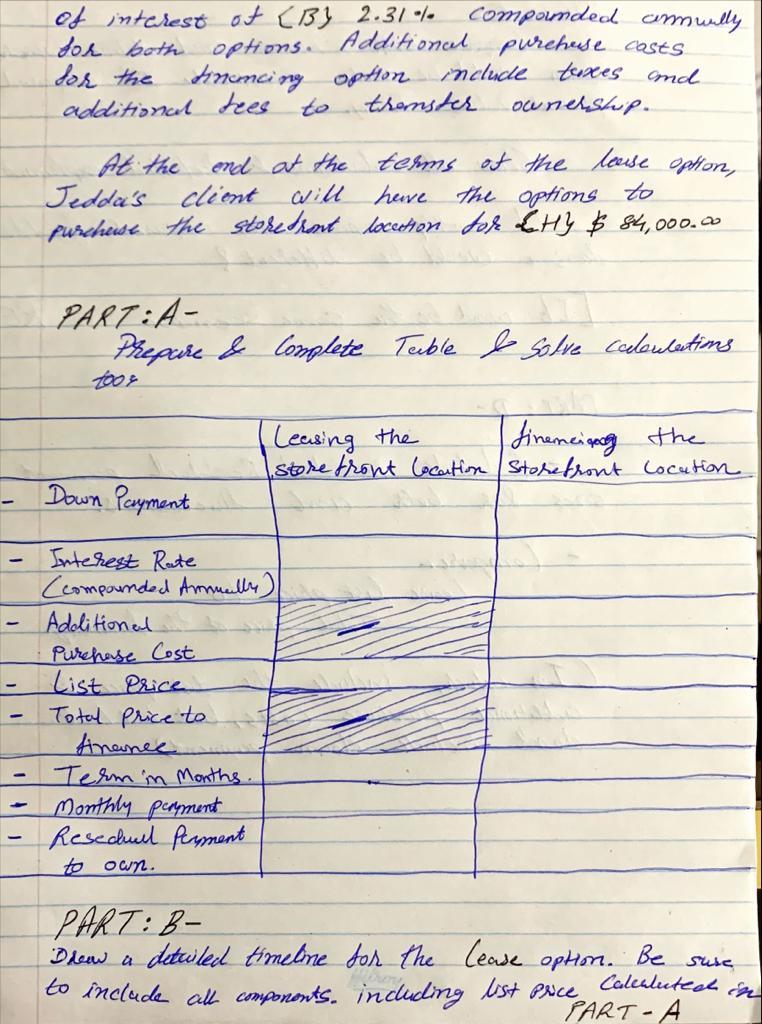 of interest of {B} 2.31% compounded annually
for both options. Additional purchase costs
for the financing option include taxes and
additional fees to transfer ownership.
At the end of the terms of the lease option,
Jedda's client will have the options to
purchase the storefront location for {H} $ 84,000.00
PART: A-
Prepare & Complete Table & Solve calculations
too:
Leasing the
storefront Location
financing the
Storefront Location
- Down Payment
- Interest Rate
(compounded Annually)
- Additional
Purchase Cost
-
- List Price
- Total Price to
finance
-
- Term in Months.
- Monthly payment
- Resedual Payment
to own.
PART: B-
Draw a detailed timeline for the Lease option. Be sure
to include all components. including list price Calculated in
PART-A